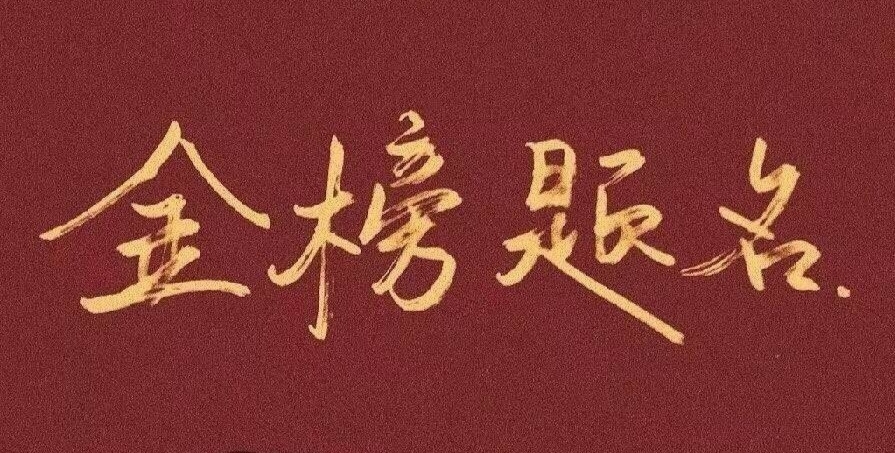 金榜题名.